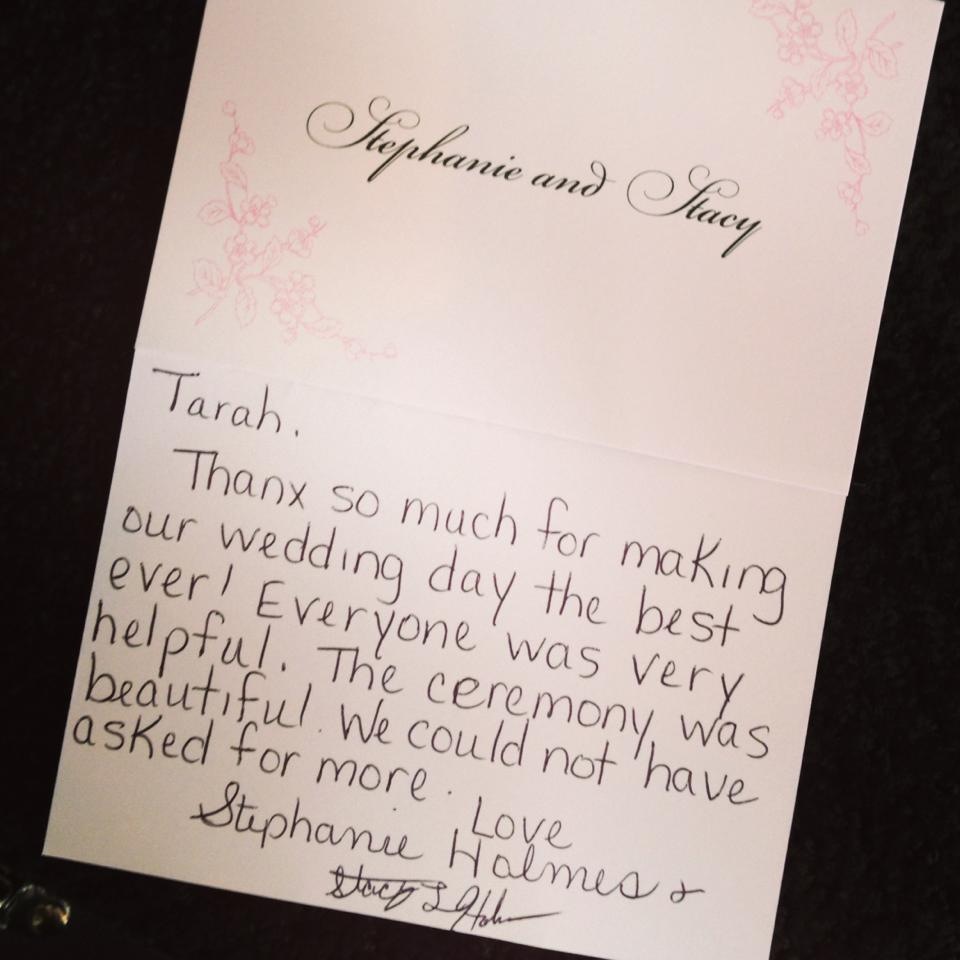 Stephanie and Stacy
Tarah.
Thanx so much for making
our wedding day the best
ever! Everyone was very
helpful. The ceremony was
beautiful. We could not have
asked for more.
Love
Stephanie Holmes &
Stacy L